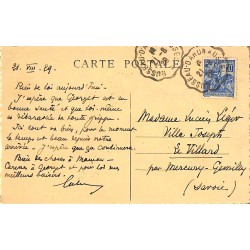 CARTE POSTALE
21. VIII. 29.
Rien de loi aujourd'hui.
J'espère que Georget est en
bonne santé et que loi-même
es débarrassée de toute grippe.
Ici tout va bien, pour le moment
le temps est beau depuis notre
arrivée. J'espère que ça continuera.
Bien des choses à Maman,
à Georget et pour loi
meilleurs baisers.
Madame Lucien Léger
Villa Joseph
Le Villard
par Mercury-Gémilly
(Savoie)